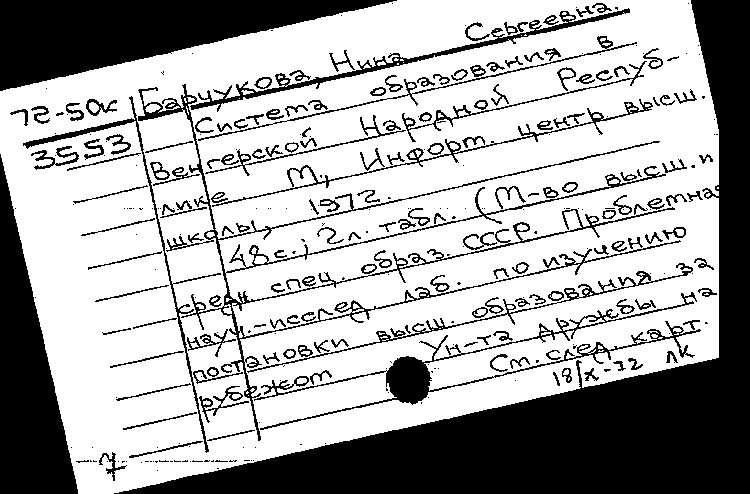 72-50к Барчукова, Нина Сергеевна.
3553 Система образования в
Венгерской Народной Респуб-
лике М., Информ. центр высш.
школы, 1972.
48 с.; 2 л. табл. (М-во высш. и
средн. спец. образ. СССР. Проблемная
науч.-исслед. лаб. по изучению
постановки высш. образования за
рубежом Ун-та дружбы на
См. след. карт.
18/X-72 ЛК
7